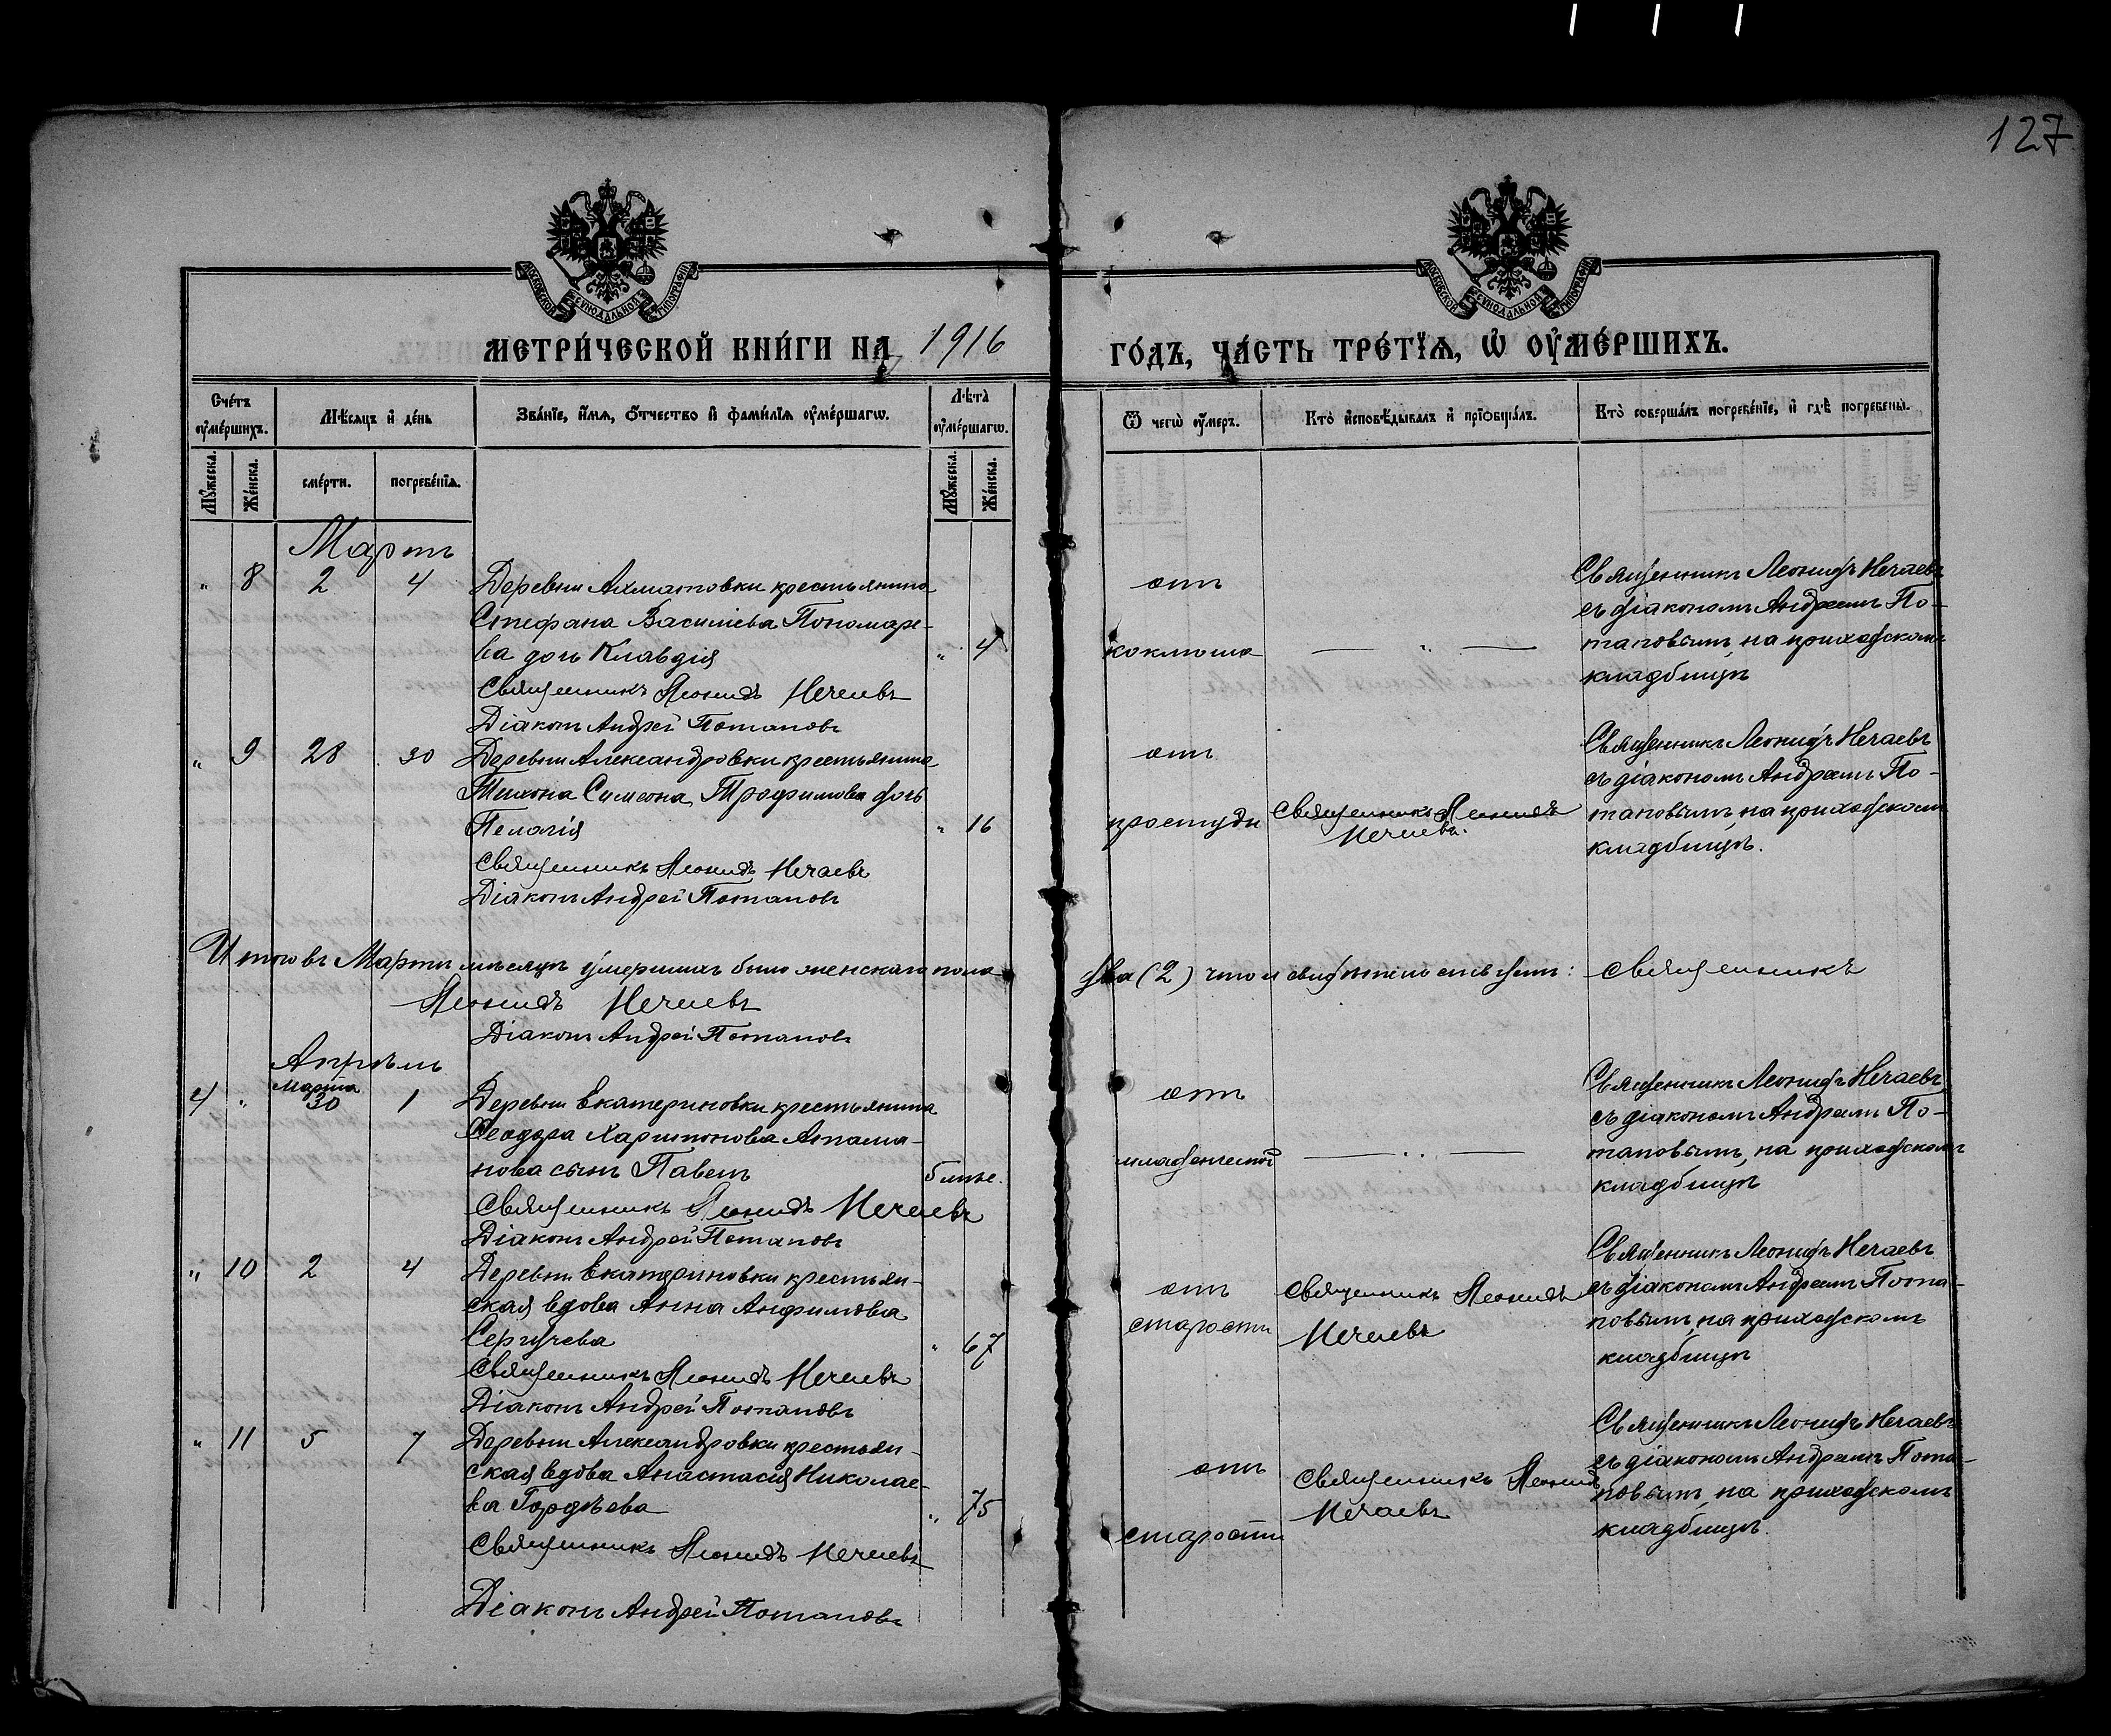 127
МОСКОВСКОЙ СѴНОДАЛЬНОЙ ТИПОГРАФІИ
МОСКОВСКОЙ СѴНОДАЛЬНОЙ ТИПОГРАФІИ
МЕТРИ́ЧЕСКОЙ КНИ́ГИ НА 1916
ГО́ДЪ, ЧА́СТЬ ТРЕ́ТЇѦ, Ѡ҆ ОУ҆МЕ́РШИХЪ.
Сче́тъ оу҆ме́ршихъ.
Мѣ́сяцъ и҆ де́нь
Зва́нїе, и҆́мѧ, ѻ҆́тчество и҆ фамі́лїѧ оу҆ме́ршагѡ.
Лѣ́та оу҆ме́ршагѡ.
Ѿ чегѡ̀ оу҆́меръ.
Кто̀ и҆сповѣ́дывалъ и҆ прїѡбща́лъ.
Кто̀ соверша́лъ погребе́нїе, и҆ гдѣ̀ погребены̀.
Мꙋ́жеска.
Же́нска.
сме́рти.
погребе́нїѧ.
Мꙋ́жеска.
Же́нска.
Мартъ
" 8 2 4 Деревни Ахматовки крестьянина
Стефана Васильева Пономаре-
ва дочь Клавдія " 4
Священникъ Леонидъ Нечаевъ
Діаконъ Андрей Потаповъ
отъ
коклюша — " —
Священникъ Леонидъ Нечаевъ
съ діакономъ Андреемъ По-
таповымъ, на приходскомъ
кладбищѣ
" 9 28 30 Деревни Александровки крестьянина
Тихона Симеона Трофимова дочь
Пелагія " 16
Священникъ Леонидъ Нечаевъ
Діаконъ Андрей Потаповъ
отъ
простуды Священникъ Леонидъ
Нечаевъ.
Священникъ Леонидъ Нечаевъ
съ діакономъ Андреемъ По-
таповымъ, на приходскомъ
кладбищѣ.
Итого въ Мартѣ мѣсяцѣ умершихъ было женскаго пола
два (2) что и свидѣтельствуемъ: Священникъ
Леонидъ Нечаевъ
Діаконъ Андрей Потаповъ
Апрѣль
4 " Марта 30 1 Деревни Екатериновки крестьянина
Ѳеодора Харитонова Атама-
нова сынъ Павелъ
Священникъ Леонидъ Нечаевъ
Діаконъ Андрей Потаповъ
отъ
младенческой — " —
Священникъ Леонидъ Нечаевъ
съ діакономъ Андреемъ По-
таповымъ, на приходскомъ
кладбищѣ
" 10 2 4 Деревни Екатериновки крестьян-
ская вдова Анна Анфимова
Сергучева " 67
Священникъ Леонидъ Нечаевъ
Діаконъ Андрей Потаповъ
отъ
старости
Священникъ Леонидъ
Нечаевъ
Священникъ Леонидъ Нечаевъ
съ діакономъ Андреемъ Пота-
повымъ, на приходскомъ
кладбищѣ
" 11 5 7 Деревни Александровки крестьян-
ская вдова Анастасія Николае-
ва Гордѣева " 75
Священникъ Леонидъ Нечаевъ
Діаконъ Андрей Потаповъ
отъ
старости
Священникъ Леонидъ
Нечаевъ
Священникъ Леонидъ Нечаевъ
съ діакономъ Андреемъ Пота-
повымъ, на приходскомъ
кладбищѣ.